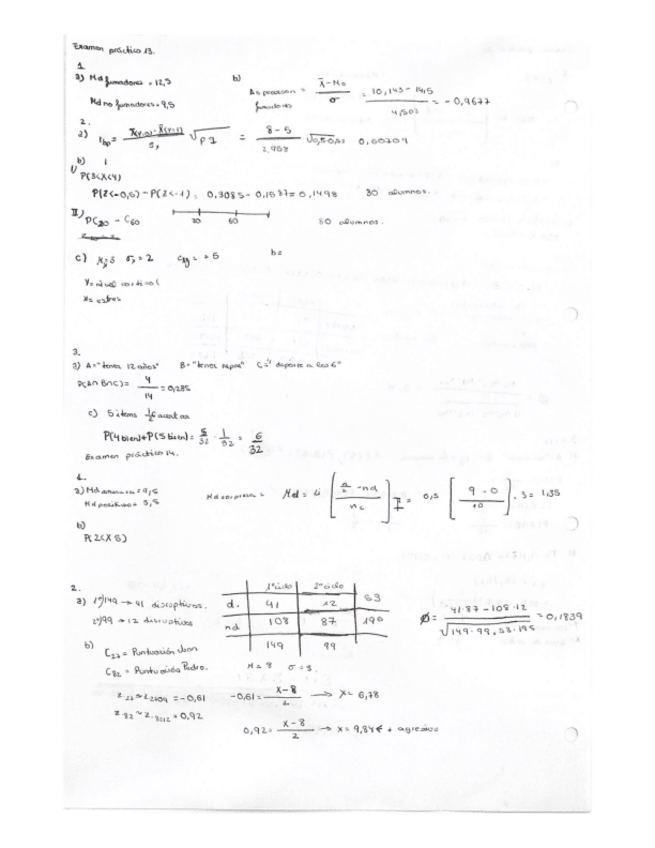 Examen práctico 13.
1
a) Md fumadores = 12,5
Md no fumadores = 9,5
b)
As pearson fumadores = (x̄ - Mo) / σ = (10,143 - 14,5) / 4,502 = -0,9677
2.
a) rbp = √pq = (8 - 5) / 2,958 0,50709
b)
I) P(3<X<4)
P(Z<-0,5) - P(Z<-1) = 0,3085 - 0,1587 = 0,1498 30 alumnos.
II) PC20 - C60 20 60 80 alumnos.
c) σx = 2 = +5 b =
Y =
X = estres
3.
a) A = "tener 12 años" B = "tener C = "deporte a las 6"
P(A∩B∩C) = 4/14 = 0,285
c) 5 items
P(4 bien) + P(5 bien) = 5/32 · 1/32 = 6/32
Examen práctico 14.
1.
a) Md = 9,5
Md positivo = 3,5
Md sorpresa = Md = Li [(n/2 - na) / nc] I = 0,5 [(9 - 0) / 10] · 3 = 1,35
b)
P(2<X<8)
2.
a) 1º/149 → 41 disruptivos.
2º/99 → 12 disruptivos
1º ciclo 2º ciclo
d. 41 12 53
nd 108 87 195
149 99
Ø = (41·87 - 108·12) / √(149·99·53·195) = 0,1839
b) C27 = Puntuación Juan
C82 = Puntuación Pedro.
M = 8 σ = 2.
Z.27 ≈ Z.2709 = -0,61 -0,61 = (X - 8) / 2 → X = 6,78
Z.82 ≈ Z.8212 = 0,92
0,92 = (X - 8) / 2 → X = 9,84 ← + agresivo